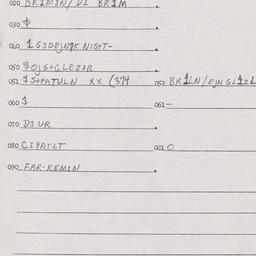 020 BR1M3N/ D1 BR1M
030 ф
040 1G3DEJN7K NIStT-
050 $OJG+GLEZ3R
051 $S+PATULN XX (374 052 BR1LN/EJNGL1ZL
060 $ 061 —
070 D3 UR
080 C1PATLT 081 O
090 FAR-KEM3N